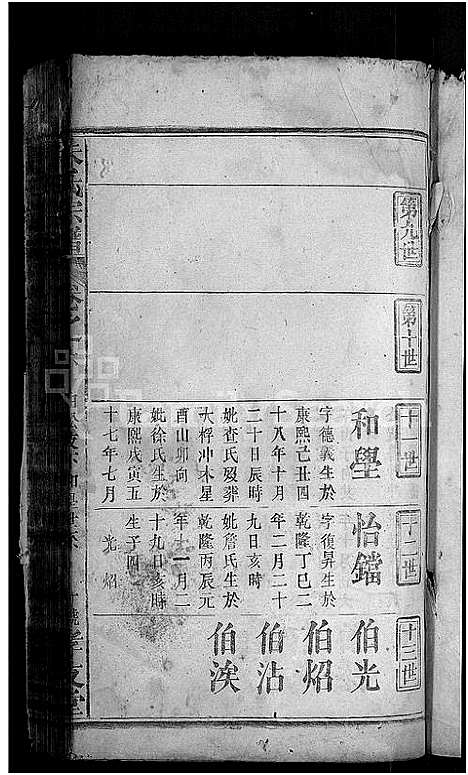 第九世
第十世
十一世
和壆
字德義生於
康熙己丑四
十八年十月
二十日辰時
妣查氏歿葬
大桴冲木星
酉山卯向
妣徐氏生於
康熙戊寅五
十七年七月
十二世
怡鐺
字復昇生於
乾隆丁巳二
年二月二十
九日亥時
妣詹氏生於
乾隆丙辰元
年十一月二
十九日亥時
生子四
光 炤
十三世
伯光
伯炤
伯沾
伯涘
朱氏宗譜